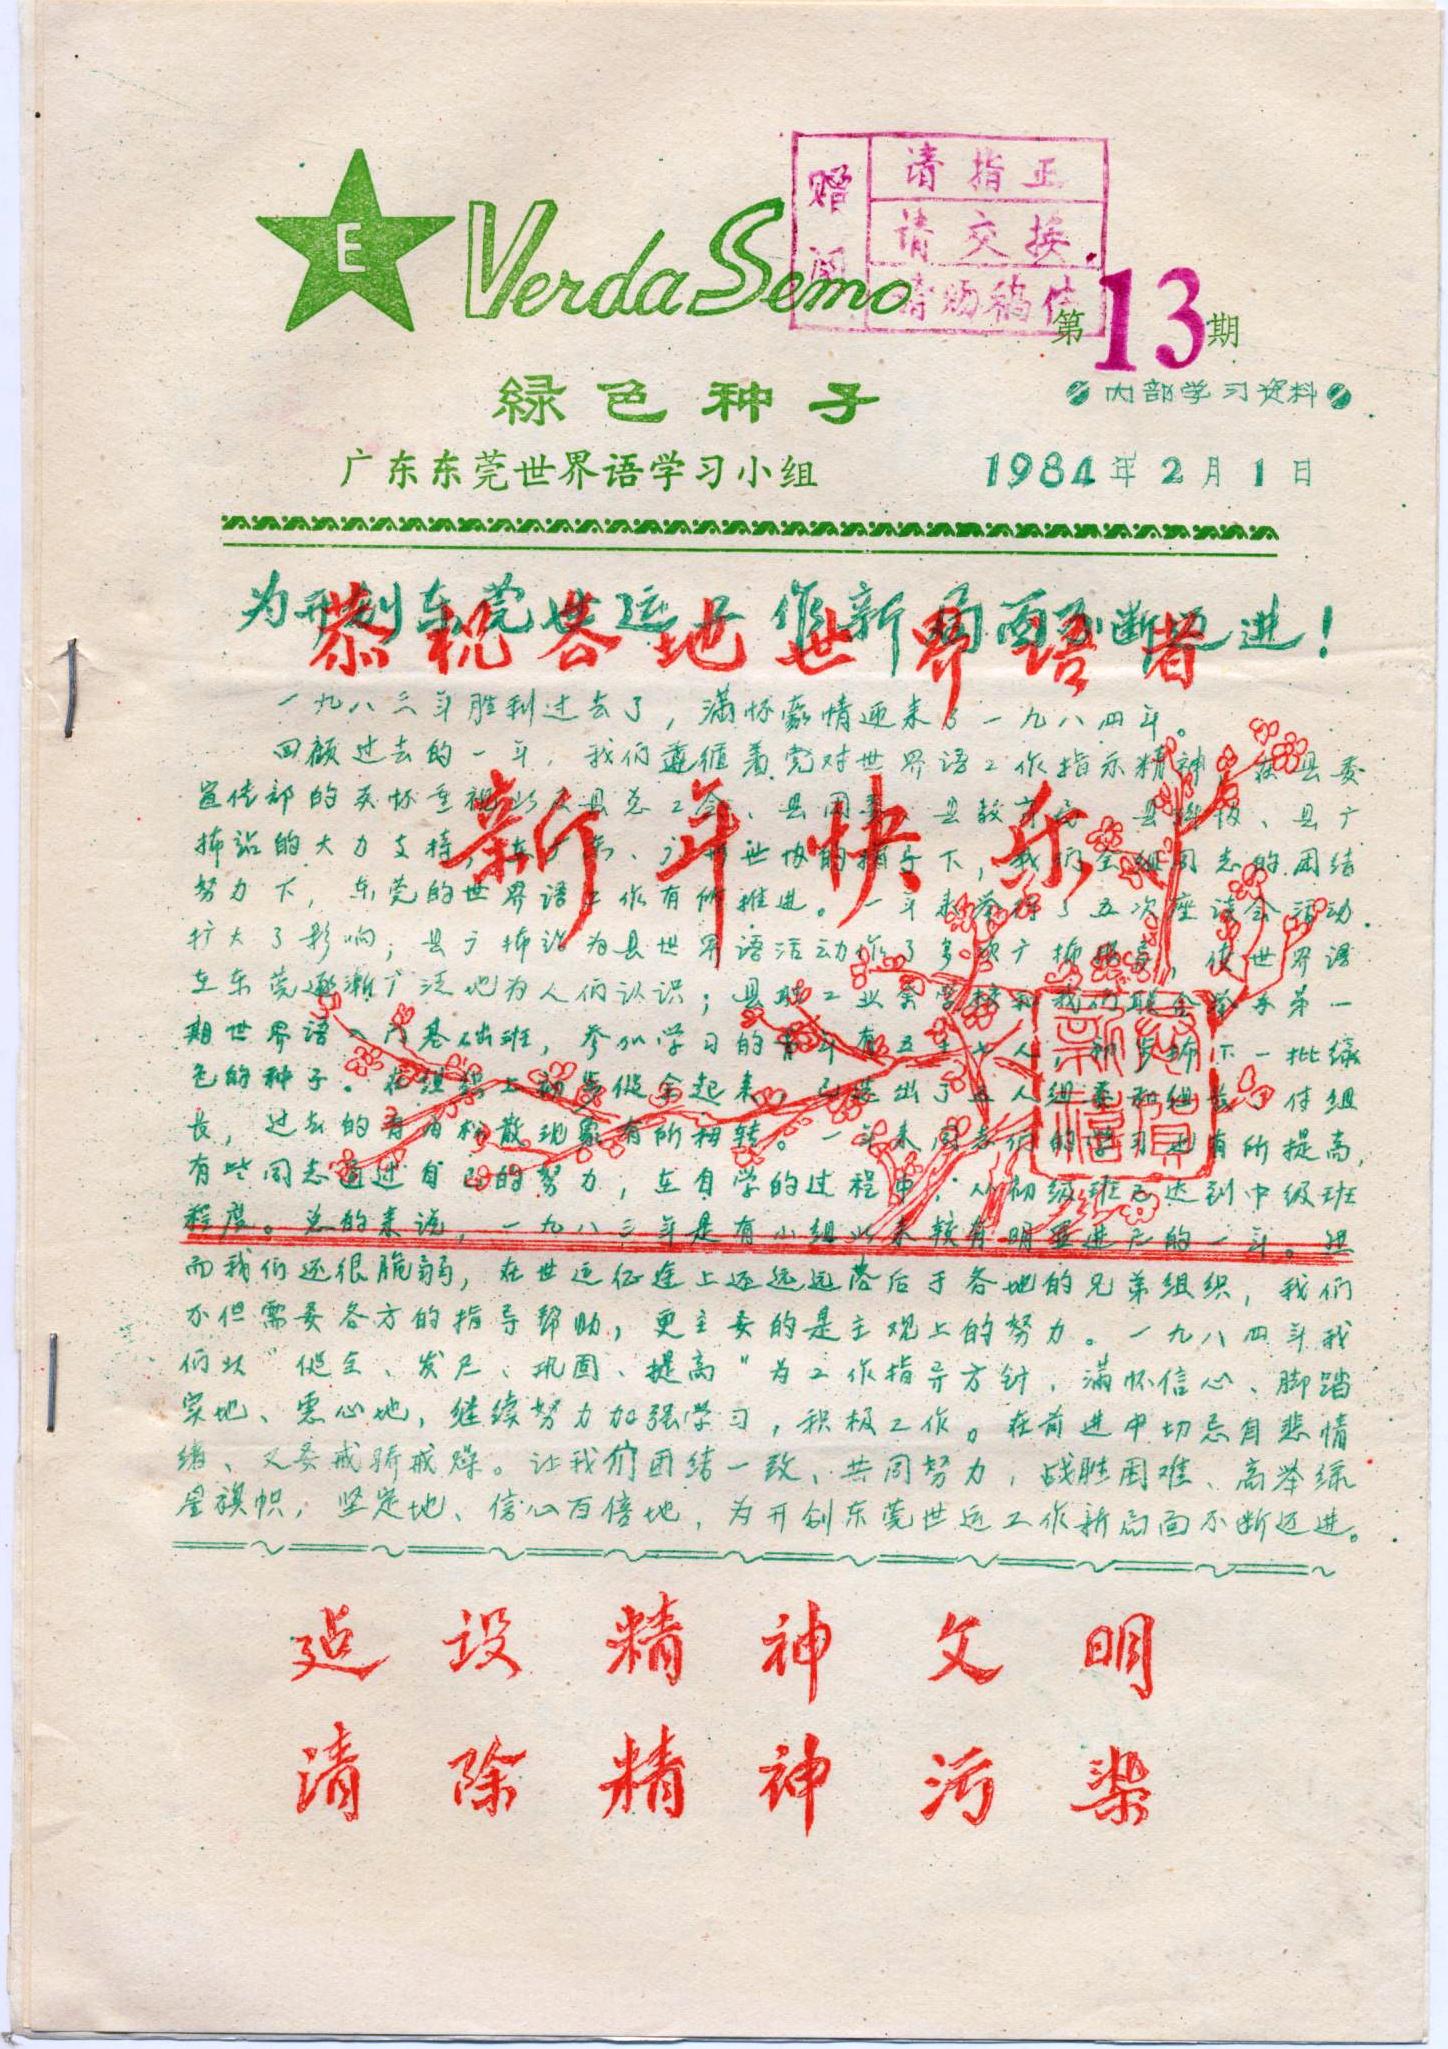 E
Verda Semo
赠阅
请指正
请交换
请赐稿件
第13期
緑色种子
内部学习资料
广东东莞世界语学习小组
1984年2月1日
为开创东莞世运工作新局面不断迈进！
恭祝各地世界语者
新年快乐
一九八三年胜利过去了，满怀豪情迎来了一九八四年。
回顾过去的一年，我们遵循着党对世界语工作指示精神，在县委
宣传部的关怀重视以及县总工会、县团委、县教育局、县科协、县广
播站的大力支持，在广东、广州世协的指导下，我们全组同志的团结
努力下，东莞的世界语工作有所推进。一年来举行了五次座谈会活动，
扩大了影响；县广播站为县世界语活动作了多次广播报导，使世界语
在东莞逐渐广泛地为人们认识；县职工业余学校和我们联合举办第一
期世界语入门基础班，参加学习的青年有五十七人，初步播下一批绿
色的种子。在组织上初步健全起来，已选出了五人组委和组长、付组
长，过去的有自松散现象有所扭转。一年来同志们的学习也有所提高，
有些同志通过自己的努力，在自学的过程中，从初级班已达到中级班
程度。总的来说，一九八三年是有小组以来较有明显进尸的一年。但
而我们还很脆弱，在世运征途上还远远落后于各地的兄弟组织，我们
不但需要各方的指导帮助，更主要的是主观上的努力。一九八四年我
们以“健全、发尸、巩固、提高”为工作指导方针，满怀信心、脚踏
实地、虚心地，继续努力加强学习，积极工作。在前进中切忌自悲情
绪、又要戒骄戒燥。让我们团结一致、共同努力，战胜困难、高举绿
星旗帜，坚定地、信心百倍地，为开创东莞世运工作新局面不断迈进。
建设精神文明
清除精神污染